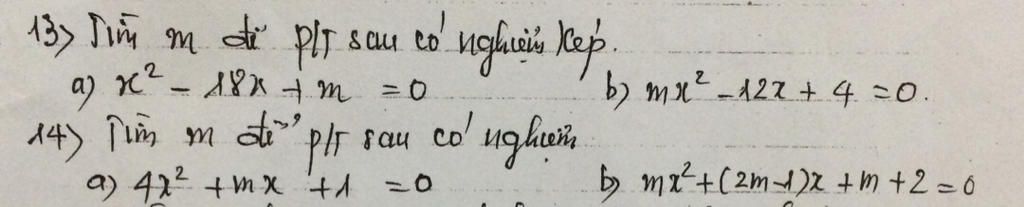 13) Tìm m để p/T sau có nghiệm kép.
a) x² - 18x + m = 0 b) mx² - 12x + 4 = 0.
14) Tìm m để p/T sau có nghiệm
a) 4x² + mx + 1 = 0 b) mx² + (2m-1)x + m + 2 = 0